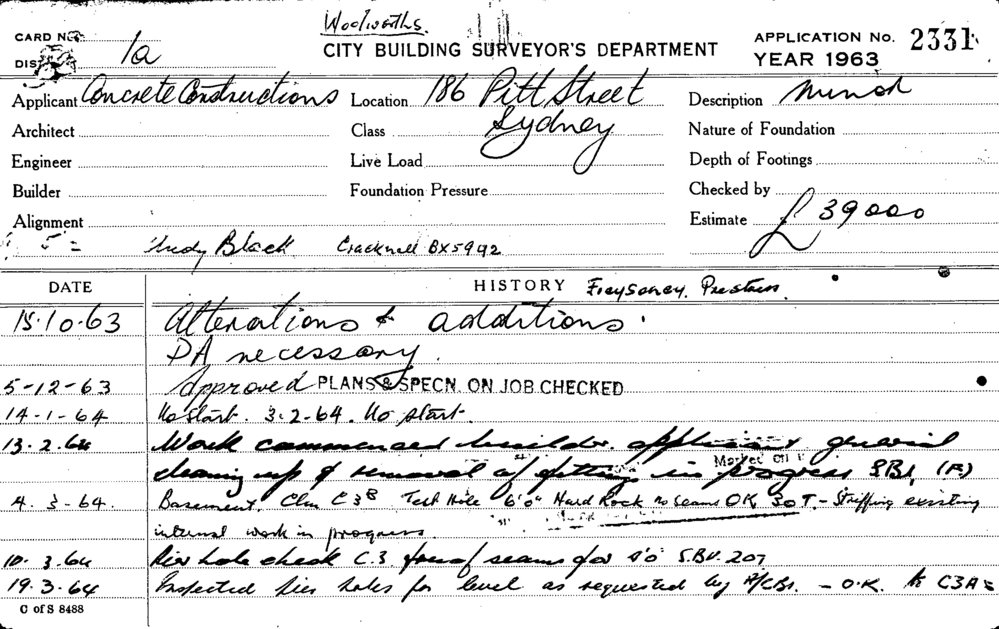 Woolworths.
CARD No. 1a
CITY BUILDING SURVEYOR'S DEPARTMENT
APPLICATION No. 2331
DIS
YEAR 1963
Applicant Concrete Constructions Location 186 Pitt Street Description Minor
Architect Class Sydney Nature of Foundation
Engineer Live Load Depth of Footings
Builder Foundation Pressure Checked by
Alignment Estimate £ 39000
Black Cracknell BX5992
DATE HISTORY
15.10.63 Alterations & additions.
DA necessary.
5-12-63 Approved PLANS & SPECN. ON JOB CHECKED
14-1-64 No start. 3.2-64. No start.
13.2.64 Work commenced builder. applicant general
cleaning up & removal of fittings in progress
4.3-64. Basement. Clm C3B Test Hole 6'0" Hard Rock no seams OK 30T. - Stripping existing
internal work in progress.
10.3.64 Pier hole check C.3 free of seams for
19.3.64 Inspected pier holes for level as requested by - O.K.
C of S 8488